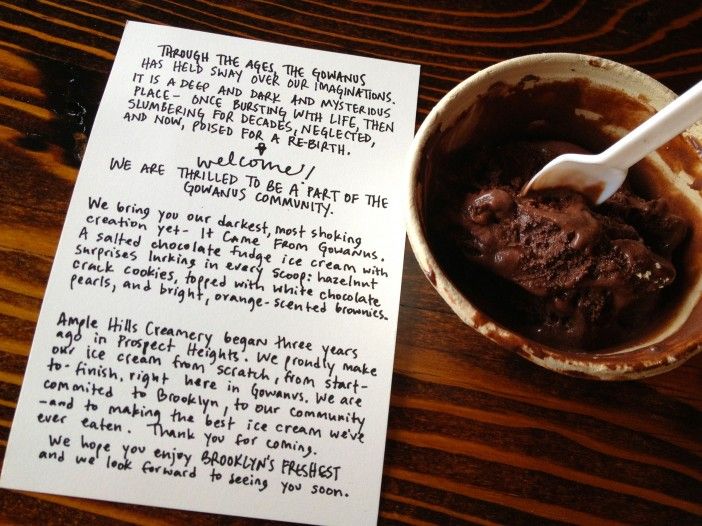 THROUGH THE AGES, THE GOWANUS
HAS HELD SWAY OVER OUR IMAGINATIONS.
IT IS A DEEP AND DARK AND MYSTERIOUS
PLACE - ONCE BURSTING WITH LIFE, THEN
SLUMBERING FOR DECADES, NEGLECTED,
AND NOW, POISED FOR A RE-BIRTH.
welcome!
WE ARE THRILLED TO BE A PART OF THE
GOWANUS COMMUNITY.
We bring you our darkest, most shoking
creation yet - It Came From Gowanus.
A salted chocolate fudge ice cream with
surprises lurking in every scoop: hazelnut
crack cookies, topped with white chocolate
pearls, and bright, orange-scented brownies.
Ample Hills Creamery began three years
ago in Prospect Heights. We proudly make
our ice cream from scratch, from start-
to-finish, right here in Gowanus. We are
commited to Brooklyn, to our community
-and to making the best ice cream we've
ever eaten. Thank you for coming.
We hope you enjoy BROOKLYN'S FRESHEST
and we look forward to seeing you soon.